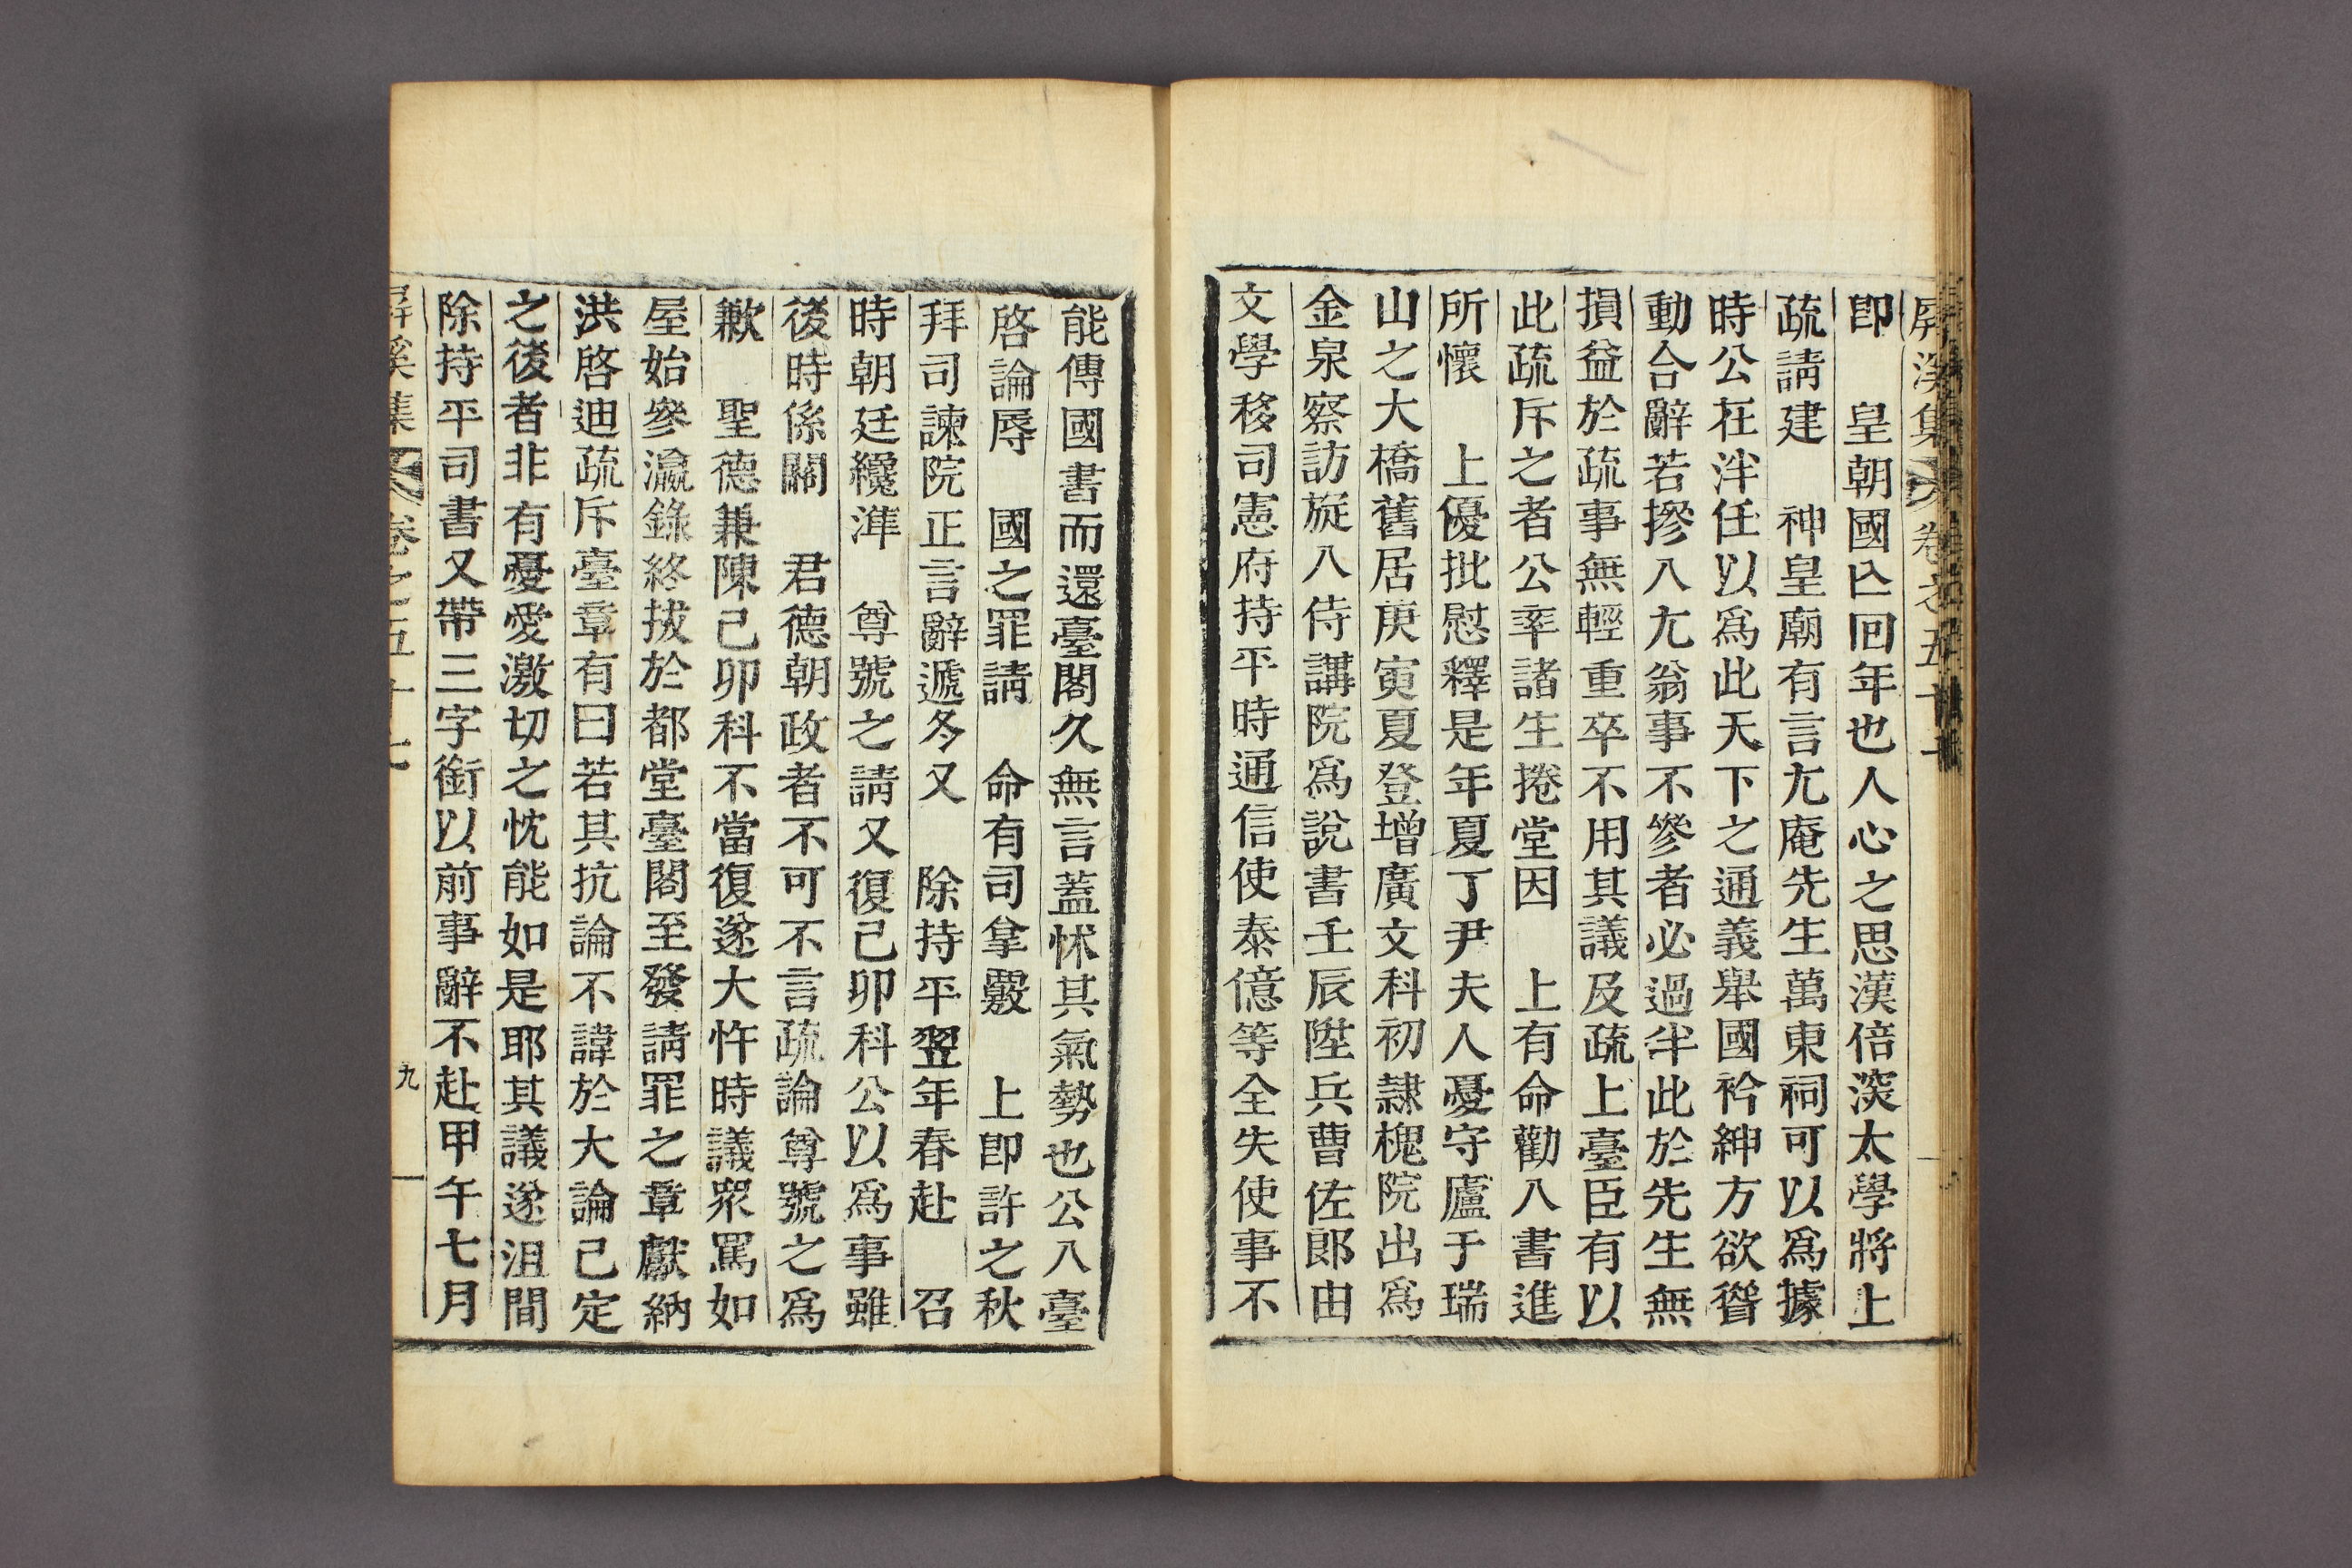 屛溪集 卷之五十七
卽 皇朝國亡回年也人心之思漢倍深太學將上
疏請建 神皇廟有言尤庵先生萬東祠可以爲據
時公在泮任以爲此天下之通義舉國衿紳方欲聳
動合辭若摻入尤翁事不參者必過半此於先生無
損益於疏事無輕重卒不用其議及疏上臺臣有以
此疏斥之者公率諸生捲堂因 上有命勸入書進
所懷 上優批慰釋是年夏丁尹夫人憂守廬于瑞
山之大橋舊居庚寅夏登增廣文科初隷槐院出爲
金泉察訪旋入侍講院爲說書壬辰陞兵曹佐郞由
文學移司憲府持平時通信使泰億等全失使事不
能傳國書而還臺閣久無言蓋怵其氣勢也公入臺
啓論辱 國之罪請 命有司拿覈 上卽許之秋
拜司諫院正言辭遞冬又 除持平翌年春赴 召
時朝廷纔準 尊號之請又復己卯科公以爲事雖
後時係關 君德朝政者不可不言疏論尊號之爲
歉 聖德兼陳己卯科不當復遂大忤時議衆罵如
屋始參瀛錄終拔於都堂臺閣至發請罪之章獻納
洪啓迪疏斥臺章有曰若其抗論不諱於大論已定
之後者非有憂愛激切之忱能如是耶其議遂沮間
除持平司書又帶三字銜以前事辭不赴甲午七月
屛溪集 卷之五十七 九